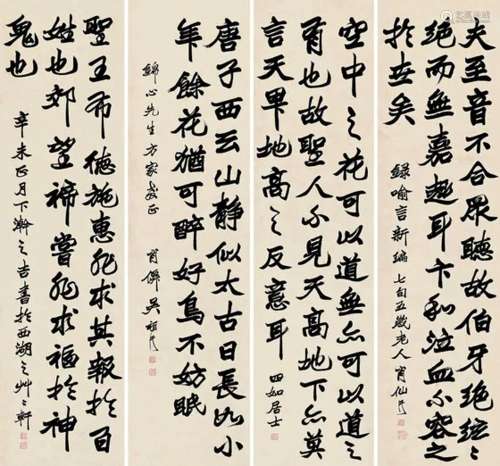 夫至音不合眾聽故伯牙絕絃々
絕而無嘉趣耳卞和泣血不容之
於世矣
錄喻言新編 七旬五歲老人肖仙
空中之花可以道無亦可以道
有也故聖人不見天高地下亦莫
言天卑地高之反意耳
四如居士
唐子西云山靜似太古日長如小
年餘花猶可醉好鳥不妨眠
先生方家教正
肖僊吳
聖王布德施惠非求其報於百
姓也郊望禘嘗非求福於神
鬼也
辛未正月下瀚之吉書於西湖之艸々軒